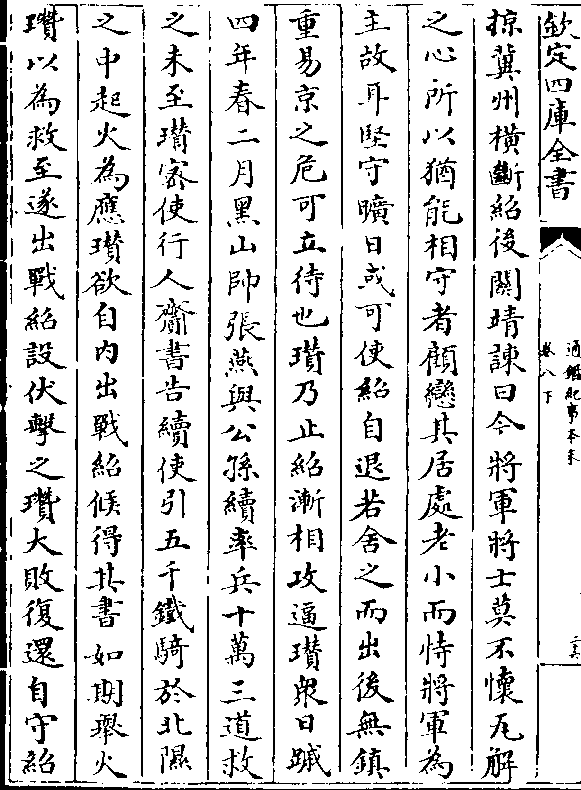 欽定四庫全書
通鑑紀事本末
卷八下
掠冀州橫斷紹後關靖諫曰今將軍將士莫不懷瓦解
之心所以猶能相守者顧戀其居處老小而恃將軍為
主故耳堅守曠日或可使紹自退若舍之而出後無鎮
重易京之危可立待也瓚乃止紹漸相攻逼瓚衆日蹙
四年春二月黑山帥張燕與公孫續率兵十萬三道救
之未至瓚宻使行人齎書告續使引五千鐵騎於北隰
之中起火為應瓚欲自內出戰紹候得其書如期舉火
瓚以為救至遂出戰紹設伏擊之瓚大敗復還自守紹